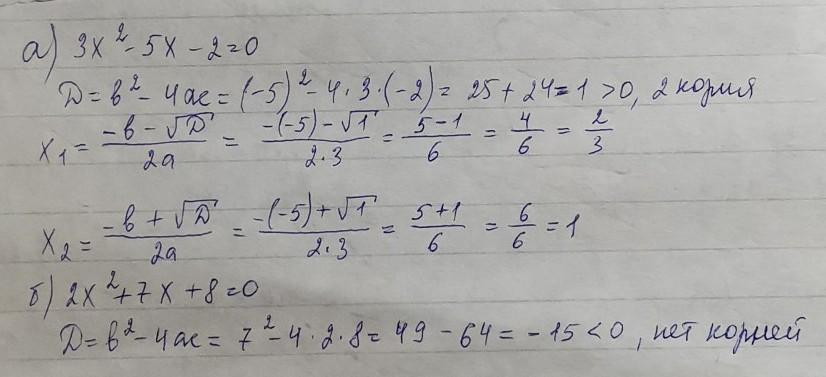 а) 3x² - 5x - 2 = 0
D = b² - 4ac = (-5)² - 4 · 3 · (-2) = 25 + 24 = 1 > 0, 2 корня
x₁ = (-b - √D)/2a = (-(-5) - √1)/(2·3) = (5 - 1)/6 = 4/6 = 2/3
x₂ = (-b + √D)/2a = (-(-5) + √1)/(2·3) = (5 + 1)/6 = 6/6 = 1
б) 2x² + 7x + 8 = 0
D = b² - 4ac = 7² - 4 · 2 · 8 = 49 - 64 = -15 < 0, нет корней